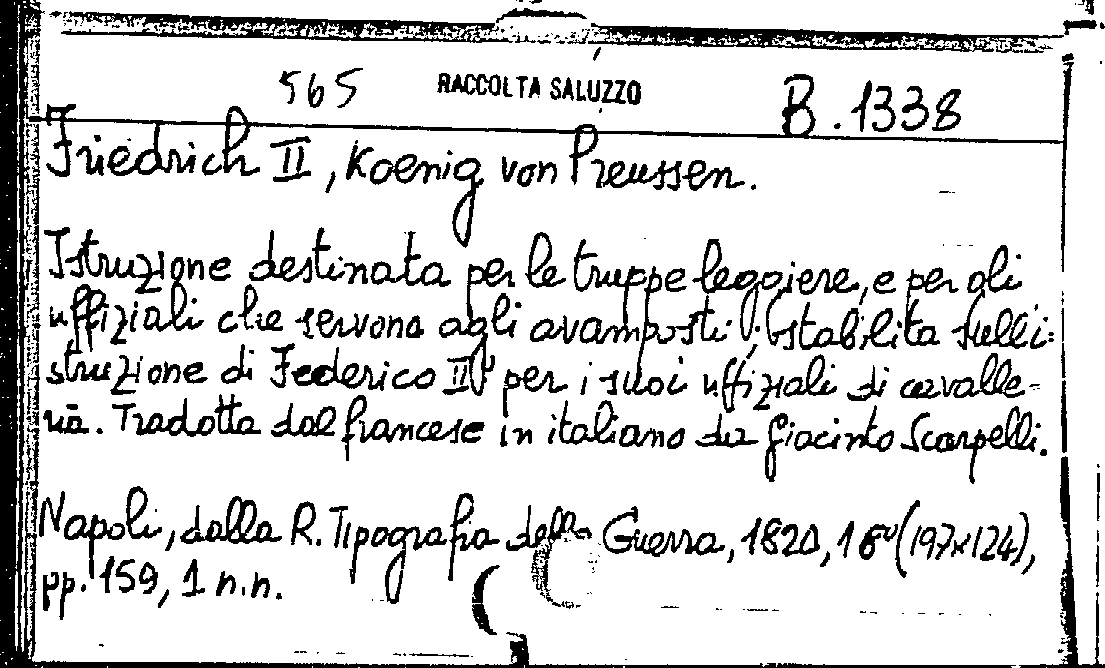 565 RACCOLTA SALUZZO B.1338
Friedrich II, Koenig von Preussen.
Istruzione destinata per le truppe leggiere, e per gli
uffiziali che servono agli avamposti stabilita sull'i=
struzione di Federico II per i suoi uffiziali di cavalle-
ria. Tradotta dal francese in italiano da Giacinto Scarpelli.
Napoli, dalla R. Tipografia della Guerra, 1820, 16° (197x124),
pp. 159, 1 n.n.